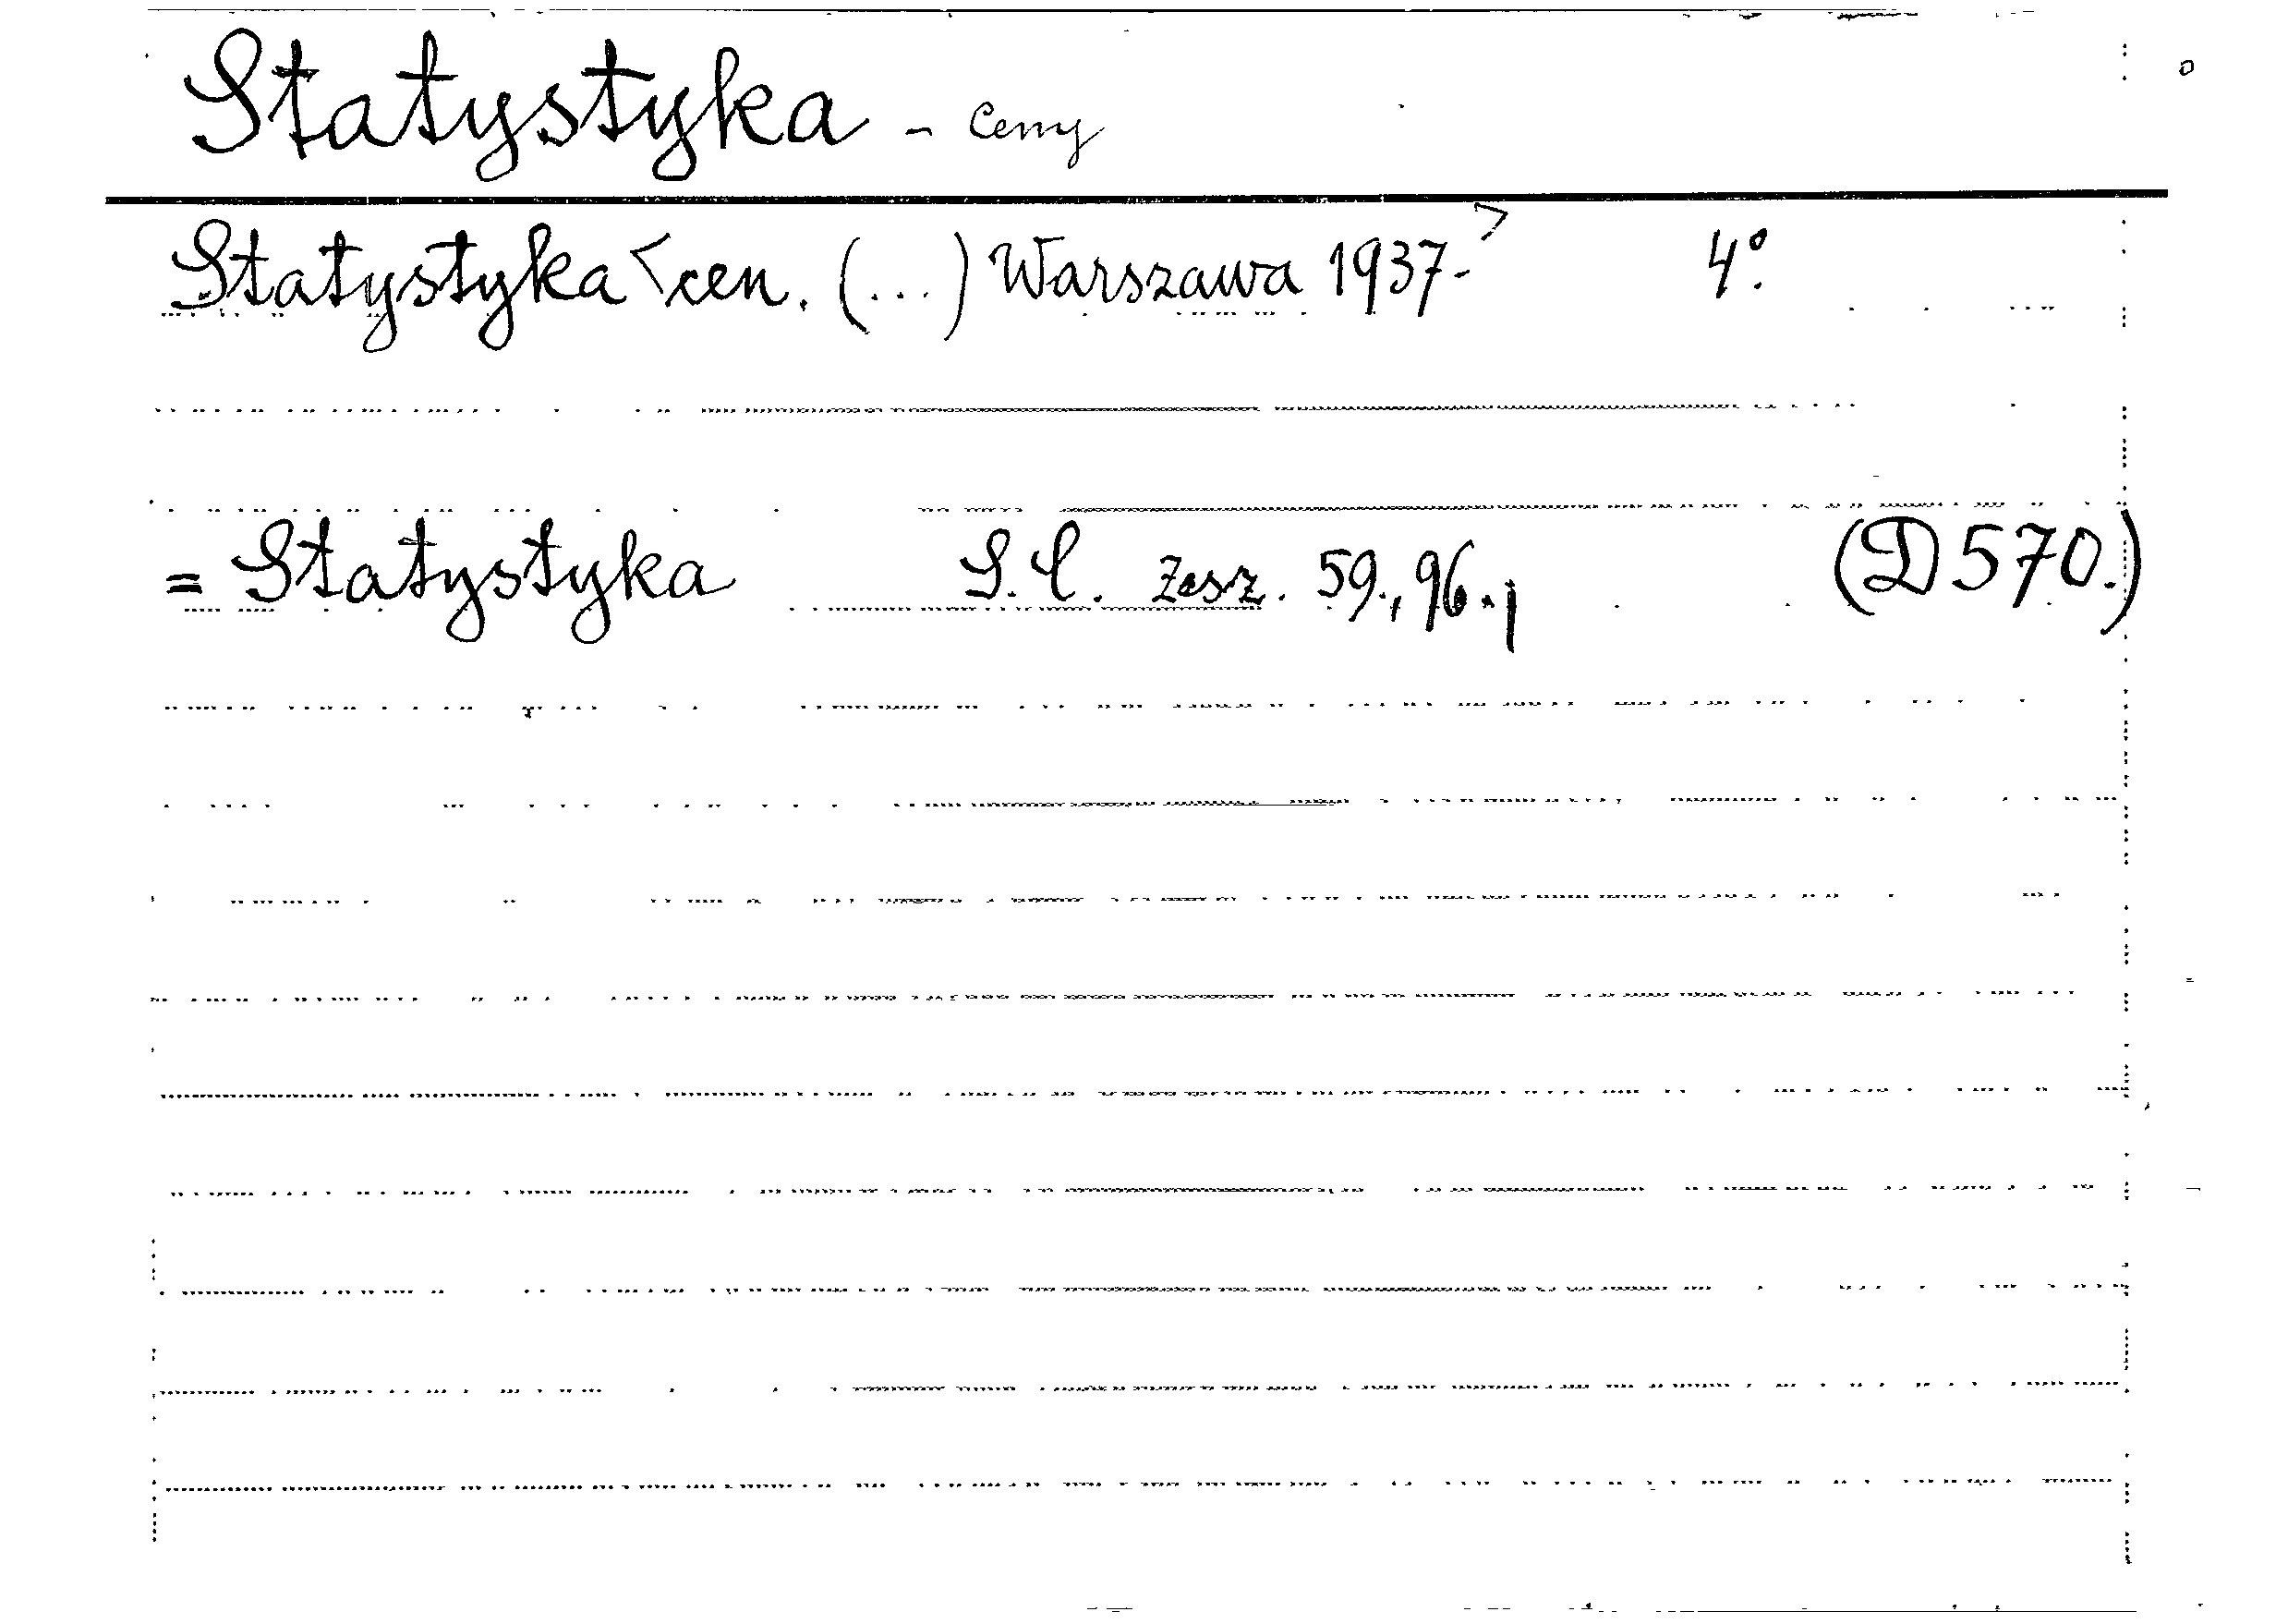 Statystyka - Ceny
Statystyka <cen. (...) Warszawa 1937-> 4°.
= Statystyka S.C. zesz. 59., 96., (D570.)